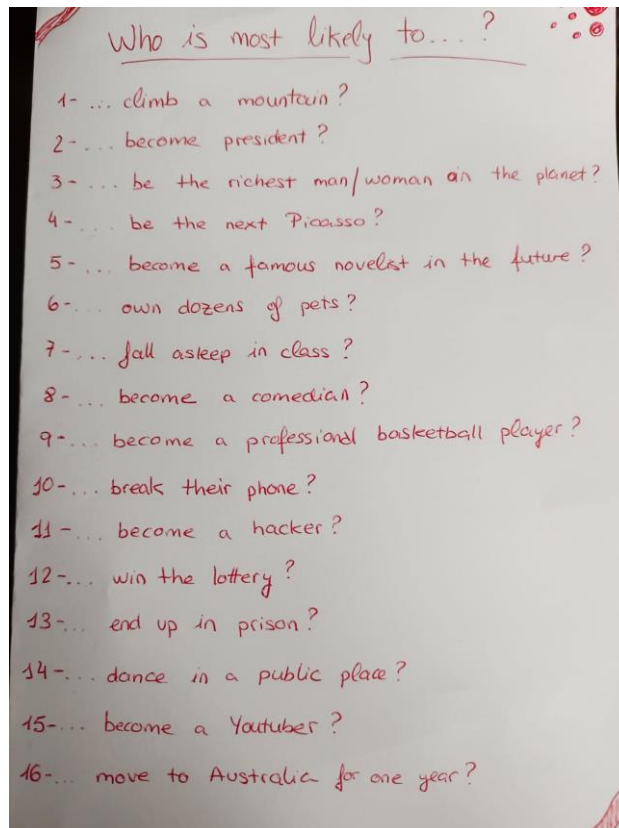 Who is most likely to...?
1- ... climb a mountain?
2- ... become president?
3- ... be the richest man/woman on the planet?
4- ... be the next Picasso?
5- ... become a famous novelist in the future?
6- ... own dozens of pets?
7- ... fall asleep in class?
8- ... become a comedian?
9- ... become a professional basketball player?
10- ... break their phone?
11- ... become a hacker?
12- ... win the lottery?
13- ... end up in prison?
14- ... dance in a public place?
15- ... become a Youtuber?
16- ... move to Australia for one year?